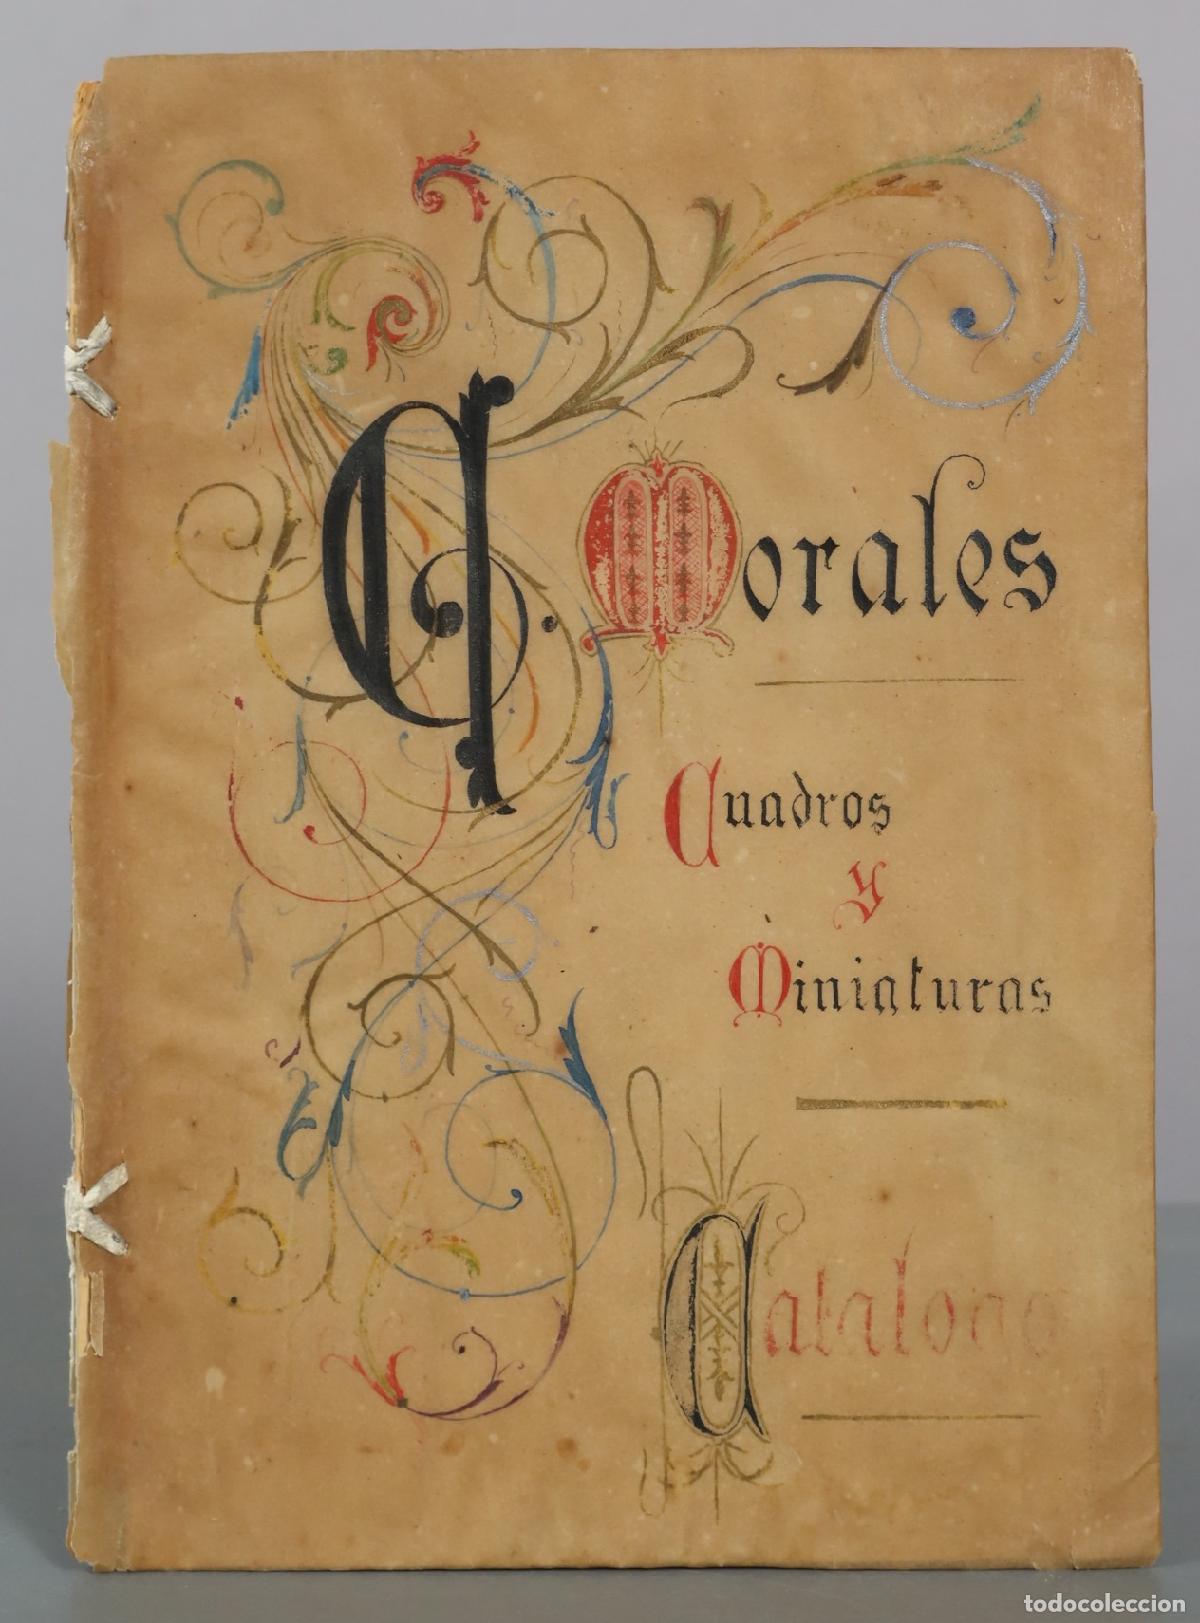 Morales
Cuadros
y
Miniaturas
Catalogo
todocoleccion